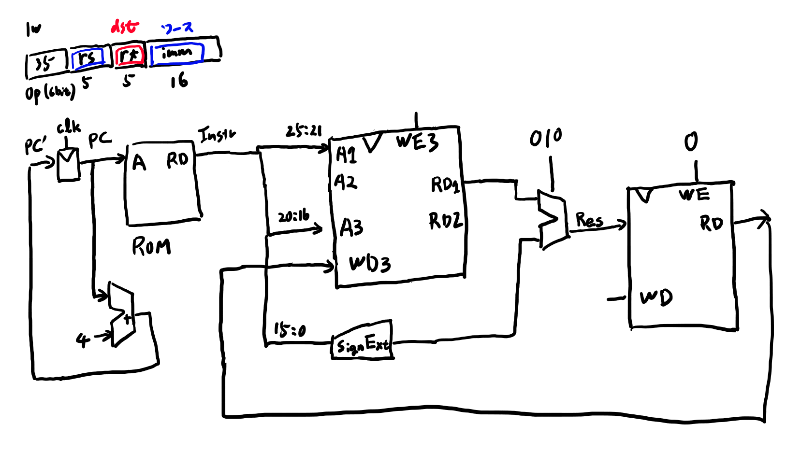 lw
dst ソース
35 rs rt imm
Op(6bit) 5 5 16
clk
PC' PC
A RD
ROM
Instr
25:21
20:16
15:0
4
+
A1 WE3
A2 RD1
A3 RD2
WD3
SignExt
010
Res
0
WE
RD
WD